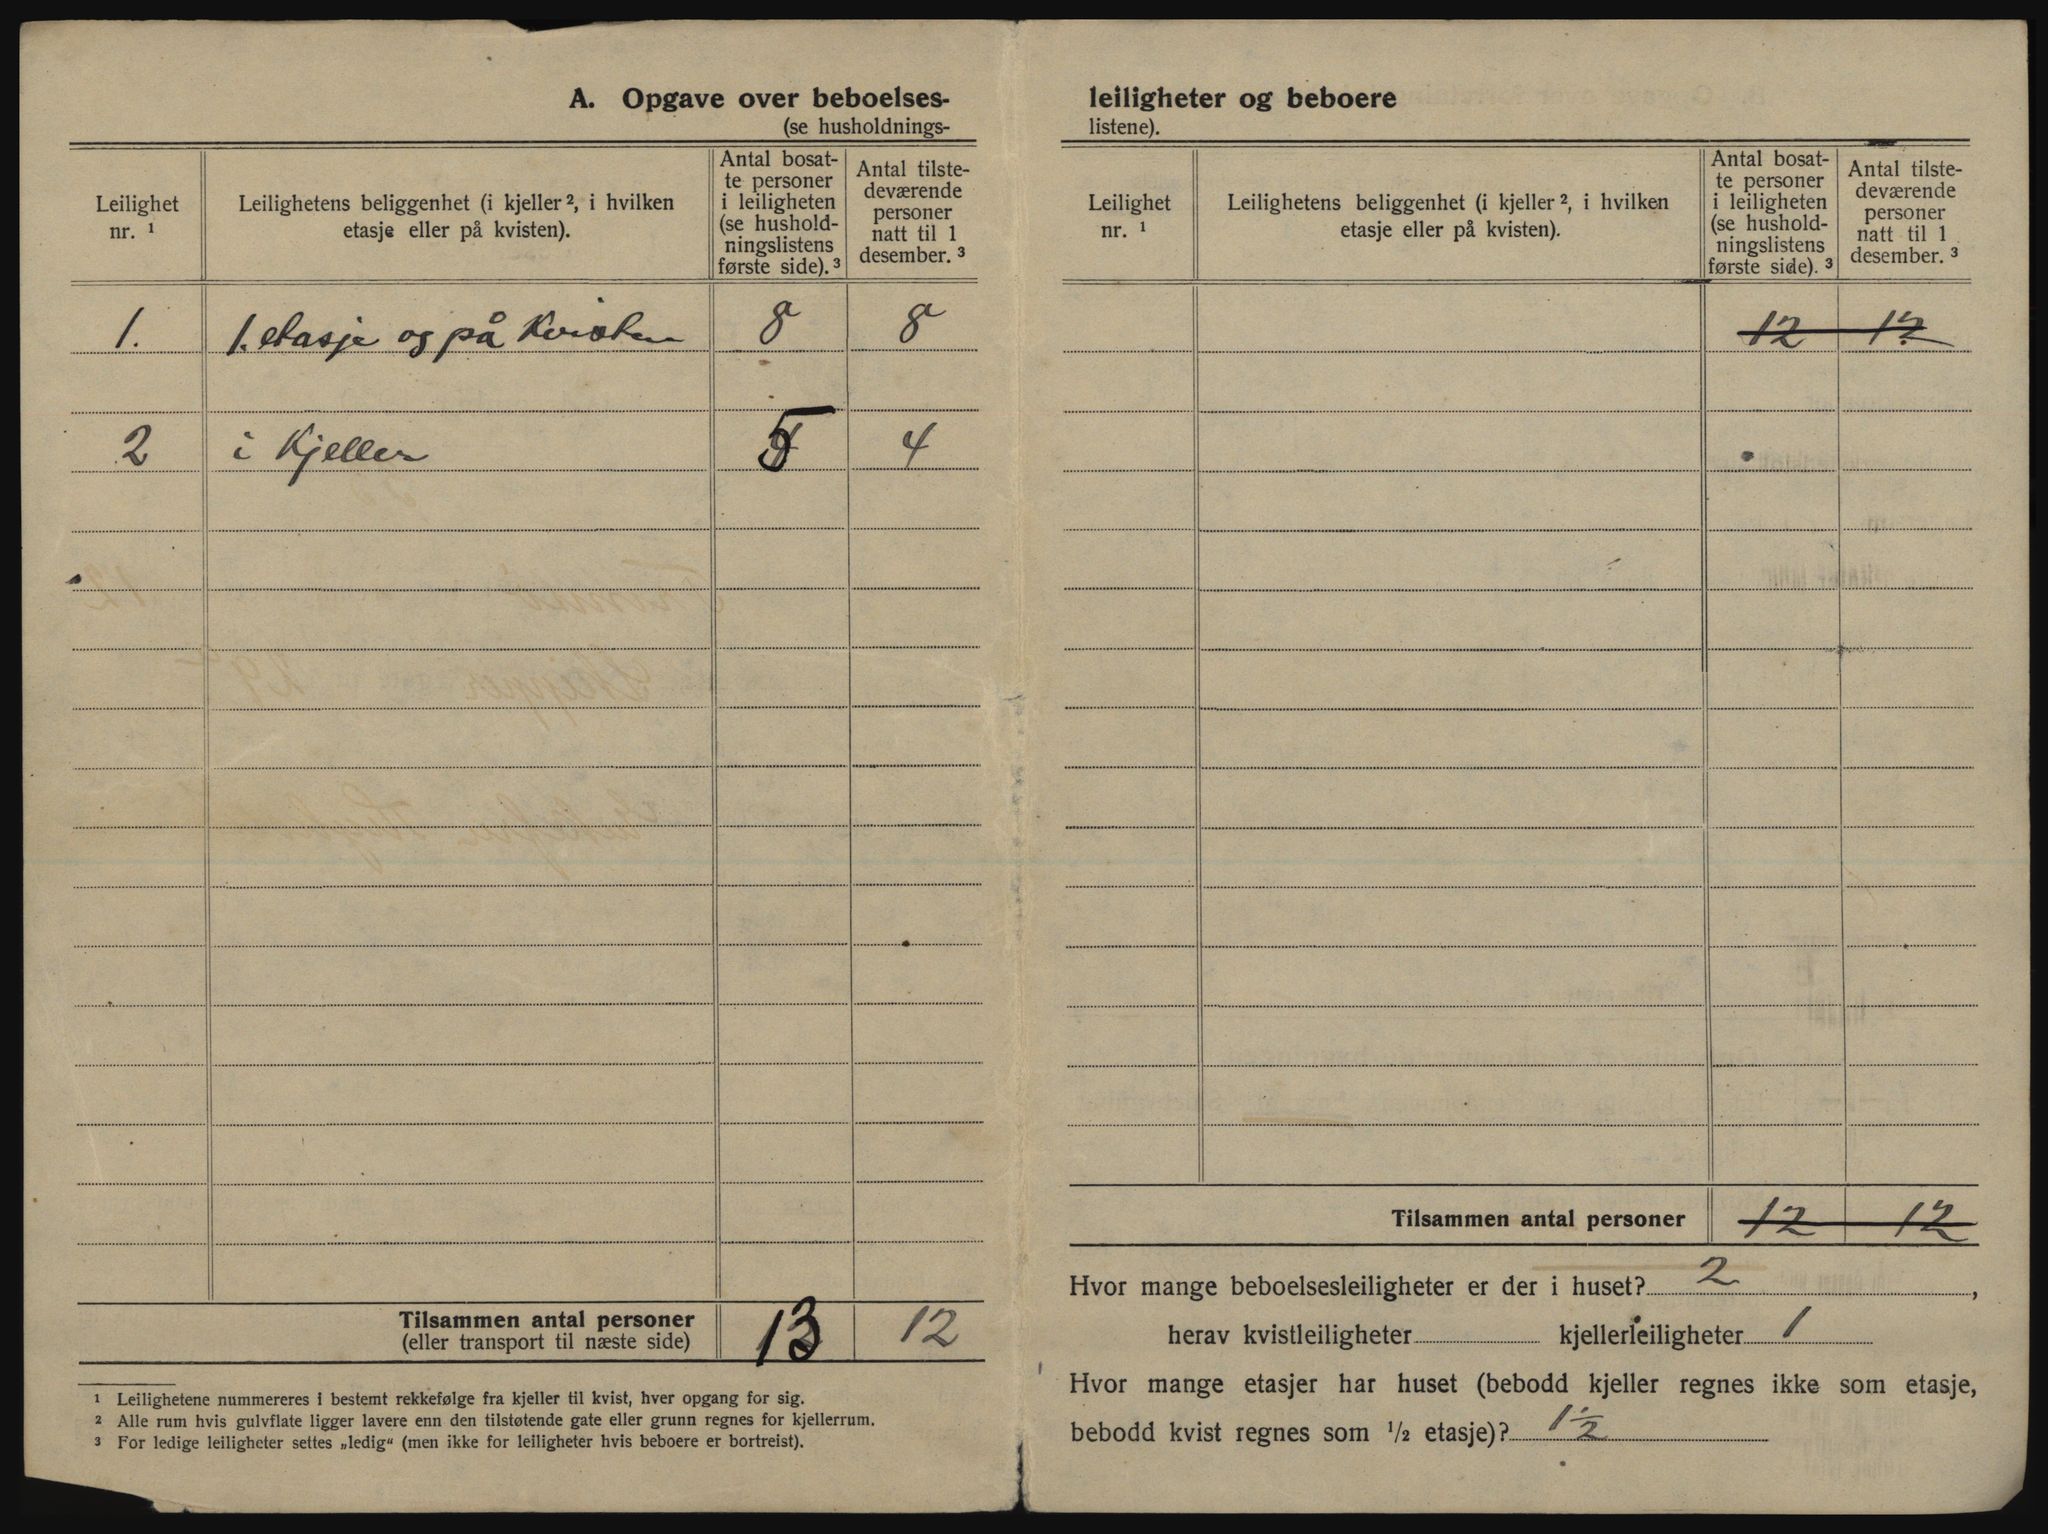 A. Opgave over beboelses-
(se husholdnings-
Leilighet
nr. ¹
Leilighetens beliggenhet (i kjeller ², i hvilken
etasje eller på kvisten).
Antal bosat-
te personer
i leiligheten
(se hushold-
ningslistens
første side). ³
Antal tilste-
deværende
personer
natt til 1
desember. ³
1. 1. etasje og på Kvisten 8 8
2 i Kjeller 5 4
Tilsammen antal personer
(eller transport til næste side) 13 12
¹ Leilighetene nummereres i bestemt rekkefølge fra kjeller til kvist, hver opgang for sig.
² Alle rum hvis gulvflate ligger lavere enn den tilstøtende gate eller grunn regnes for kjellerrum.
³ For ledige leiligheter settes „ledig“ (men ikke for leiligheter hvis beboere er bortreist).
leiligheter og beboere
listene).
Leilighet
nr. ¹
Leilighetens beliggenhet (i kjeller ², i hvilken
etasje eller på kvisten).
Antal bosat-
te personer
i leiligheten
(se hushold-
ningslistens
første side). ³
Antal tilste-
deværende
personer
natt til 1
desember. ³
12 12
Tilsammen antal personer 12 12
Hvor mange beboelsesleiligheter er der i huset? 2,
herav kvistleiligheter kjellerleiligheter 1
Hvor mange etasjer har huset (bebodd kjeller regnes ikke som etasje,
bebodd kvist regnes som ½ etasje)? 1½